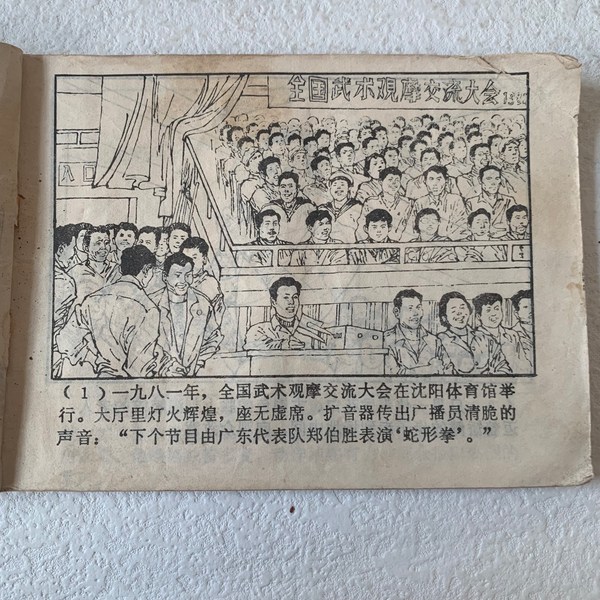 全国武术观摩交流大会
入口
（1）一九八一年，全国武术观摩交流大会在沈阳体育馆举
行。大厅里灯火辉煌，座无虚席。扩音器传出广播员清脆的
声音：“下个节目由广东代表队郑伯胜表演‘蛇形拳’。”